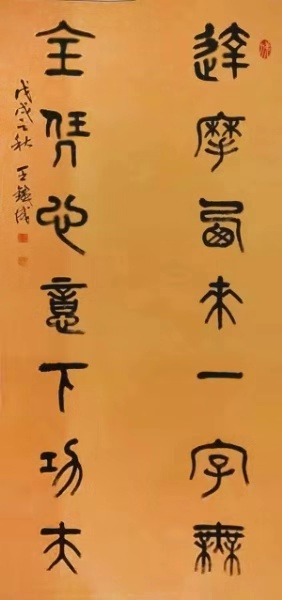 達摩西来一字無
全凭心意下功夫
戊戌之秋 王鏤成